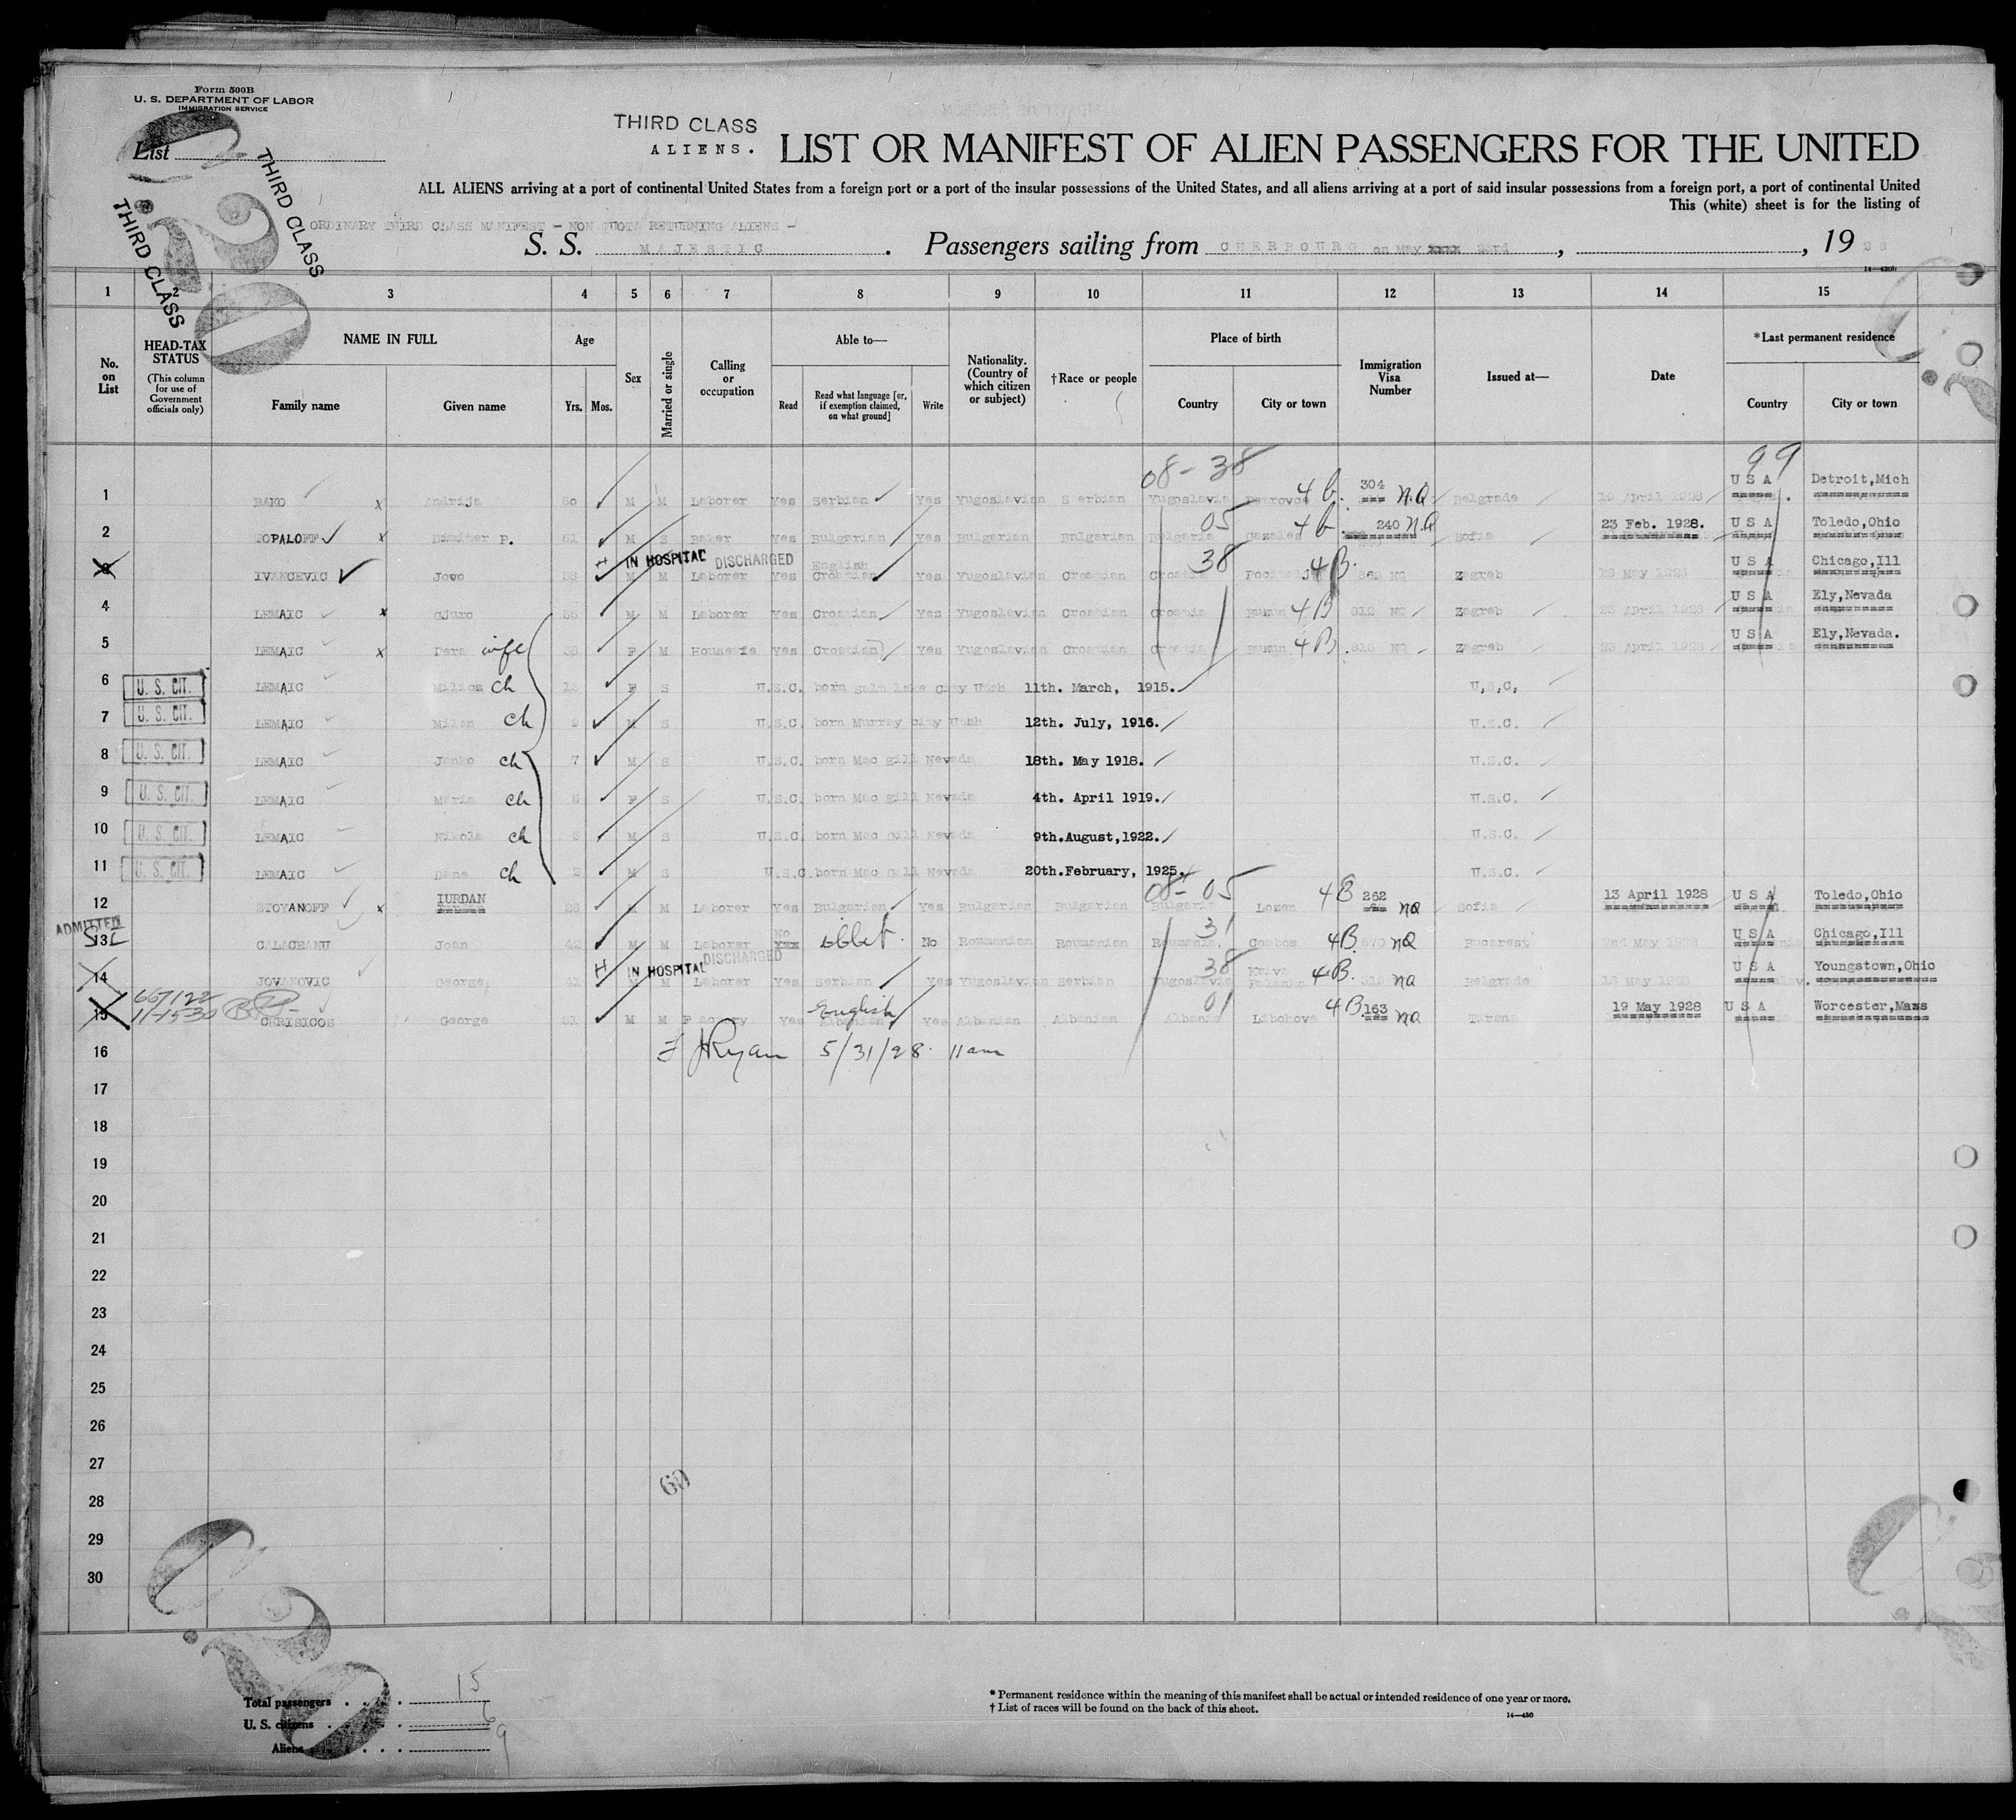 Form 500B
U. S. DEPARTMENT OF LABOR
IMMIGRATION SERVICE
List
THIRD CLASS
THIRD CLASS
THIRD CLASS
ALIENS.
LIST OR MANIFEST OF ALIEN PASSENGERS FOR THE UNITED
ALL ALIENS arriving at a port of continental United States from a foreign port or a port of the insular possessions of the United States, and all aliens arriving at a port of said insular possessions from a foreign port, a port of continental United
This (white) sheet is for the listing of
ORDINARY THIRD CLASS MANIFEST - NON QUOTA RETURNING ALIENS -
S. S. MAJESTIC. Passengers sailing from CHERBOURG on May xxxx 23rd, , 1928
14-430b
1 2 3 4 5 6 7 8 9 10 11 12 13 14 15
No. on List
HEAD-TAX STATUS
(This column for use of Government officials only)
NAME IN FULL
Family name Given name
Age
Yrs. Mos.
Sex
Married or single
Calling or occupation
Able to—
Read
Read what language [or, if exemption claimed, on what ground]
Write
Nationality. (Country of which citizen or subject)
†Race or people
Place of birth
Country City or town
Immigration Visa Number
Issued at—
Date
*Last permanent residence
Country City or town
08-38 99
1 BAKO x Andrija 50 M M Laborer Yes Serbian Yes Yugoslavian Serbian Yugoslavia 4b. 304 N.Q Belgrade April 1928 USA Detroit,Mich
2 TOPALOFF x Dimiter P. 51 M S Baker Yes Bulgarian Yes Bulgarian Bulgarian Bulgaria 05 4b 240 N.Q Sofia 23 Feb. 1928. USA Toledo,Ohio
H IN HOSPITAL DISCHARGED
3 IVANCEVIC Jovo M M Laborer Yes English Croatian Yes Yugoslavian Croatian Croatia 38 4B. NQ Zagreb May 1928 USA Chicago,Ill
4 LEMAIC x Gjuro M M Laborer Yes Croatian Yes Yugoslavian Croatian Croatia 4B 812 NQ Zagreb 23 April 1928 USA Ely,Nevada
5 LEMAIC x wife F M Housewife Yes Croatian Yes Yugoslavian Croatian Croatia 4B 813 NQ Zagreb 23 April 1928 USA Ely,Nevada.
6 U. S. CIT. LEMAIC ch F S U.S.C. born Salt Lake City Utah 11th. March, 1915. U.S.C.
7 U. S. CIT. LEMAIC Milan ch 9 M S U.S.C. born Murray city Utah 12th. July, 1916. U.S.C.
8 U. S. CIT. LEMAIC Janko ch 7 M S U.S.C. born Mac gill Nevada 18th. May 1918. U.S.C.
9 U. S. CIT. LEMAIC Maria ch F S U.S.C. born Mac gill Nevada 4th. April 1919. U.S.C.
10 U. S. CIT. LEMAIC Nikola ch M S U.S.C. born Mac gill Nevada 9th.August,1922. U.S.C.
11 U. S. CIT. LEMAIC ch 2 M S U.S.C. born Mac gill Nevada 20th.February, 1925. U.S.C.
08- 05
12 STOYANOFF x IURDAN M M Laborer Yes Bulgarian Yes Bulgarian Bulgarian Bulgaria Lozen 4B 262 NQ Sofia 13 April 1928 USA Toledo,Ohio
ADMITTED
13 Joan 42 M M Laborer No No Roumanian Roumanian Roumania. 31 4B. NQ Bucarest 2nd May 1928 USA Chicago,Ill
H IN HOSPITAL DISCHARGED
14 JOVANOVIC George, M M Laborer Yes Serbian Yes Yugoslavian Serbian Yugoslavia 38 Kriva Palanka 4B. NQ Belgrade May 1928 USA Youngstown,Ohio
667122
11-1530
15 CHRISICOS George 51 M M Factory Yes English Albanian Yes Albanian Albanian Albania 01 Libohove 4B. 163 NQ Tirana 19 May 1928 USA Worcester,Mass
16 Ryan 5/31/28. 11am
17
18
19
20
21
22
23
24
25
26
27
28
29
30
69
Total passengers 15
U. S. citizens 6
Aliens 9
* Permanent residence within the meaning of this manifest shall be actual or intended residence of one year or more.
† List of races will be found on the back of this sheet.
14-430